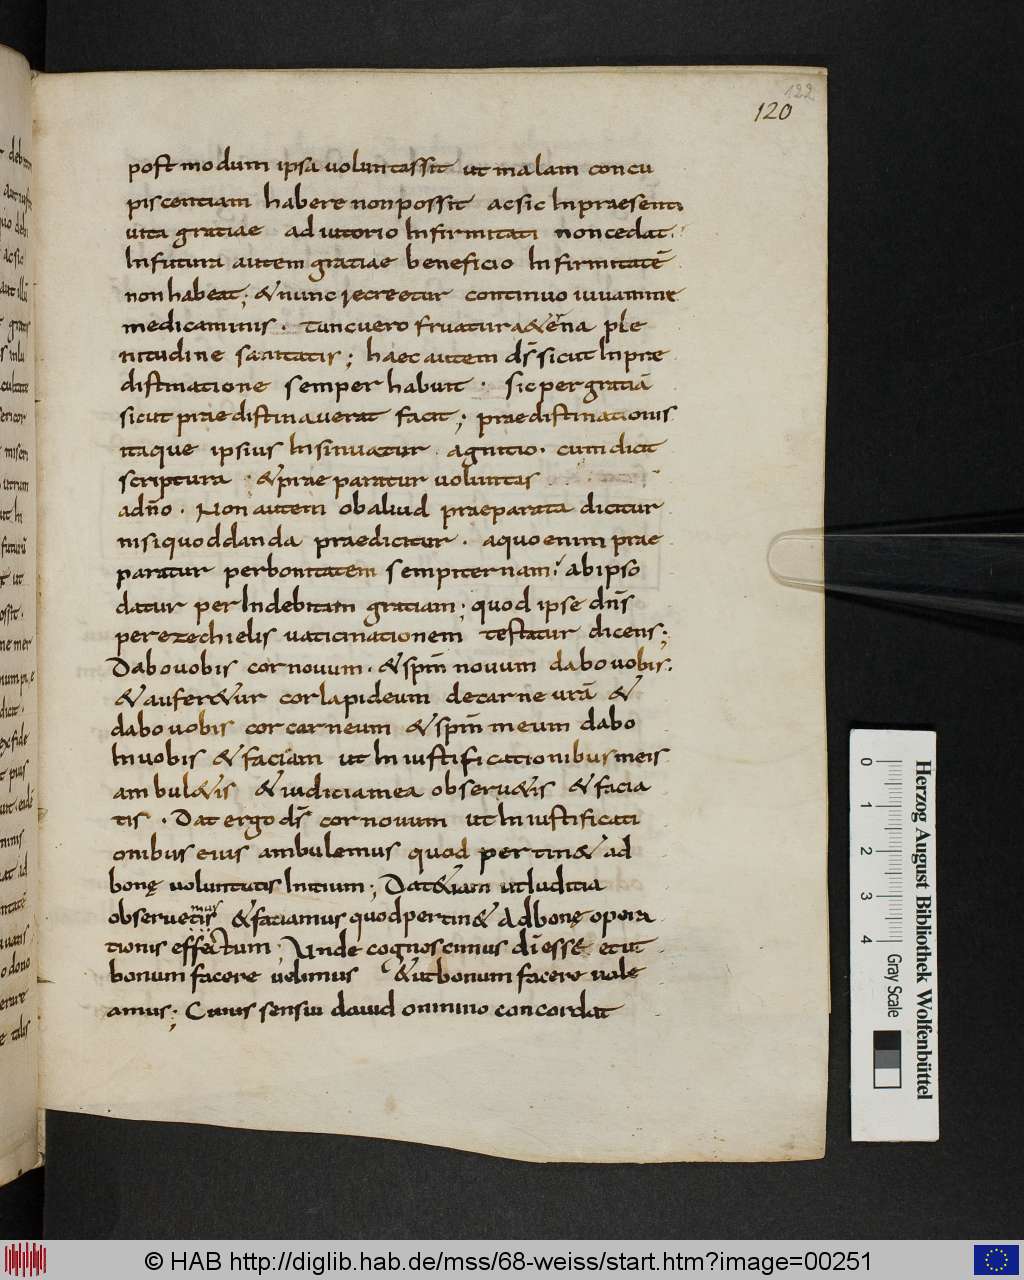 122
120
post modum ipsa voluntas sit ut malam concu
piscentiam habere non possit ac sic In praesenti
uita gratiae adiutorio Infirmitati non cedat.
In futura autem gratiae beneficio Infirmitatē
non habeat; & nunc recreetur continuo iuuamine
medicaminis. tunc uero fruatur a&erna ple
nitudine sanitatis; haec autem ds̄ sicut In prae
distinatione semper habuit. sic per gratiā
sicut praedistinauerat facit; praedistinationis
itaque ipsius Insinuatur agnitio. cum dicit
scriptura & praeparatur uoluntas
a dn̄o. Non autem ob aliud praeparata dicitur
nisi quod danda praedicitur. a quo enim prae
paratur per bonitatem sempiternam. ab ipso
datur per Indebitam gratiam; quod ipse dn̄s
per ezechielis uaticinationem testatur dicens;
Dabo uobis cor nouum. & spm̄ nouum dabo uobis.
& aufer&ur cor lapideum de carne urā &
dabo uobis cor carneum & spm̄ meum dabo
In uobis & faciam ut In iustificationibus meis
ambul&is & iudicia mea obseru&is & facia
tis. Dat ergo ds̄ cor nouum ut In iustificati
onibus eius ambulemus quod pertin& ad
bonę uoluntatis Initium; Dat&iam ut Iudicia
mus
obseruetis & faciamus quod pertin& Ad bonę opera
tionis effectum; Unde cognoscimus di esse et ut
bonum facere uelimus & ut bonum facere uale
amus; Cuius sensui dauid omnino concordat
Herzog August Bibliothek Wolfenbüttel
0 1 2 3 4 Gray Scale
© HAB http://diglib.hab.de/mss/68-weiss/start.htm?image=00251